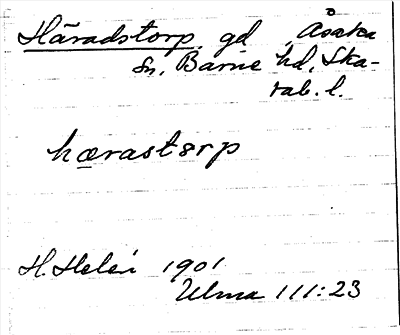 Häradstorp, gd Åsaka
sn, Barne hd, Ska-
rab. l.
hærastɵrp
H. Helén 1901
Ulma 111:23